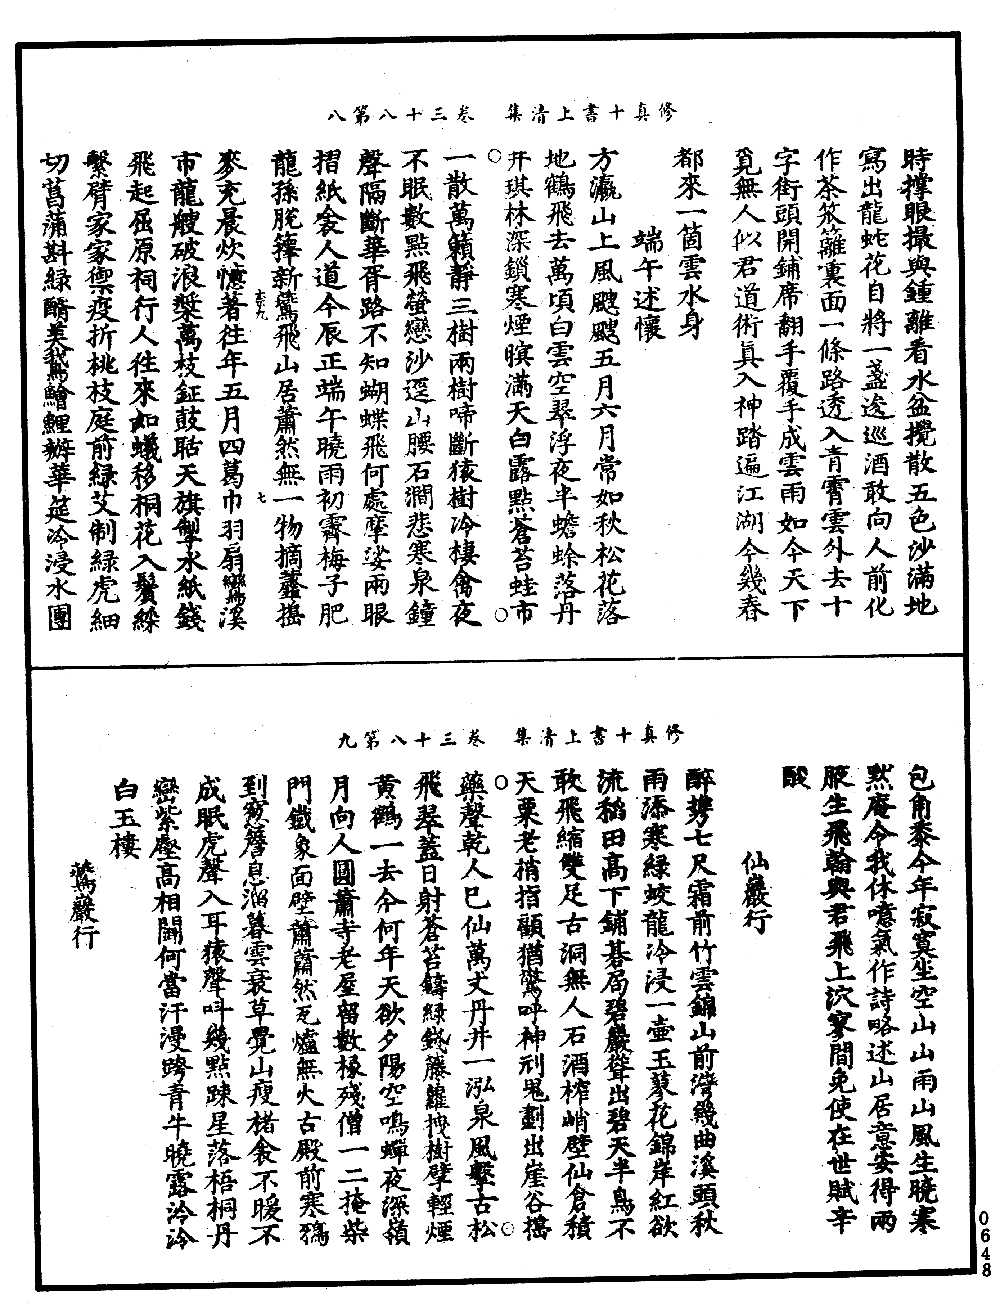 修真十書上清集　卷三十八第八
時撑眼撮與鍾離看水盆攪散五色沙滿地
寫出龍蛇花自將一盞逡巡酒敢向人前化
作茶笊籬裏面一條路透入青霄雲外去十
字街頭開鋪席翻手覆手成雲雨如今天下
覓無人似君道術真入神踏遍江湖今幾春
都來一箇雲水身
端午述懷
方瀛山上風颼颼五月六月常如秋松花落
地鶴飛去萬頃白雲空翠浮夜半蟾蜍落丹
井琪林深鎖寒煙暝滿天白露點蒼苔蛙市
一散萬籟靜三樹兩樹啼斷猿樹冷棲禽夜
不眠數點飛螢戀沙逕山腰石澗悲寒泉鐘
聲隔斷華胥路不知蝴蝶飛何處摩挲兩眼
摺紙衾人道今辰正端午曉雨初霽梅子肥
龍孫脫籜新鶯飛山居蕭然無一物摘藿搗
麥充晨炊憶著往年五月四葛巾羽扇鸞溪
市龍艘破浪槳萬枝鉦鼓聒天旗掣水紙錢
飛起屈原祠行人往來如蟻移桐花入鬢綵
繫臂家家禦疫折桃枝庭前綠艾制綠虎細
切菖蒲斟綠醑美鵝鱠鯉辦華筵冷浸水團
修真十書上清集　卷三十八第九
包角黍今年寂寞坐空山山雨山風生曉寒
然庵今我休噫氣作詩略述山居意安得兩
腋生飛翰與君飛上泬寥間免使在世賦辛
酸
仙巖行
醉拶七尺霜前竹雲錦山前灣幾曲溪頭秋
雨添寒綠蛟龍冷浸一壺玉蓼花錦岸紅欲
流稻田高下鋪碁局碧巖聳出碧天半鳥不
敢飛縮雙足古洞無人石酒榨峭壁仙倉積
天粟老梢指顧猶驚呼神刓鬼劃出崖谷搗
藥聲乾人已仙萬丈丹井一泓泉風鏧古松
飛翠蓋日射蒼苔鑄綠錢藤蘿拽樹擘輕煙
黃鶴一去今何年天欲夕陽空鳴蟬夜深嶺
月向人圓蕭寺老屋留數椽殘僧一二掩柴
門鐵象面壁蕭蕭然瓦爐無火古殿前寒鴉
到寂簷息溜暮雲衰草覺山瘦楮衾不暖不
成眠虎聲入耳猿聲叫幾點疎星落梧桐丹
巒紫壑高相鬪何當汗漫跨青牛曉露泠泠
白玉樓
鶯巖行
0648